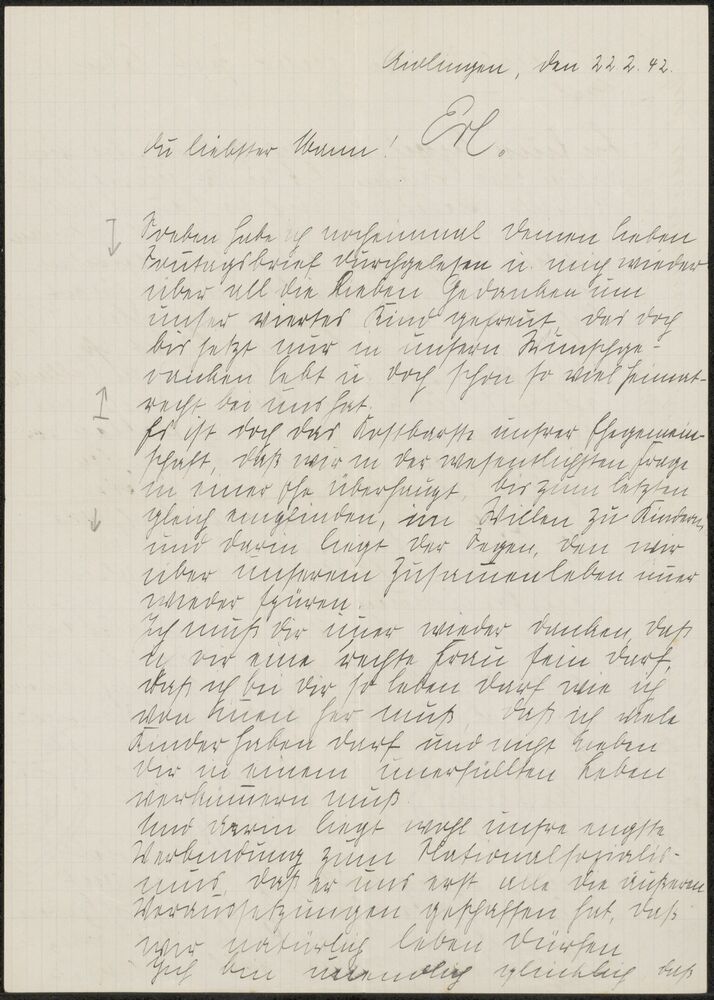 Aidlingen, den 22 2. 42.
Erl.
Du liebster Mann!
Soeben habe ich nocheinmal Deinen lieben
Sonntagsbrief durchgelesen u. mich wieder
über all die lieben Gedanken um
unser viertes Kind gefreut, das doch
bis jetzt nur in unsern Wunschge-
danken lebt u. doch schon so viel Heimat-
recht bei uns hat.
Es ist doch das Kostbarste unsrer Ehegemein-
schaft, daß wir in der wesentlichsten Frage
in einer Ehe überhaupt, bis zum letzten
gleich empfinden, im Willen zu Kindern,
und darin liegt der Segen, den wir
über unserem Zusammenleben immer
wieder spüren.
Ich muß Dir immer wieder danken, daß
ich Dir eine rechte Frau sein darf,
daß ich bei Dir so leben darf wie ich
von innen her muß, daß ich viele
Kinder haben darf und nicht neben
Dir in einem unerfüllten Leben
verkümmern muß.
Und darin liegt wohl unsre engste
Verbindung zum Nationalsozialis-
mus, daß er uns erst alle die äußeren
Voraussetzungen geschaffen hat, daß
wir natürlich leben dürfen.
Ich bin unendlich glücklich, daß